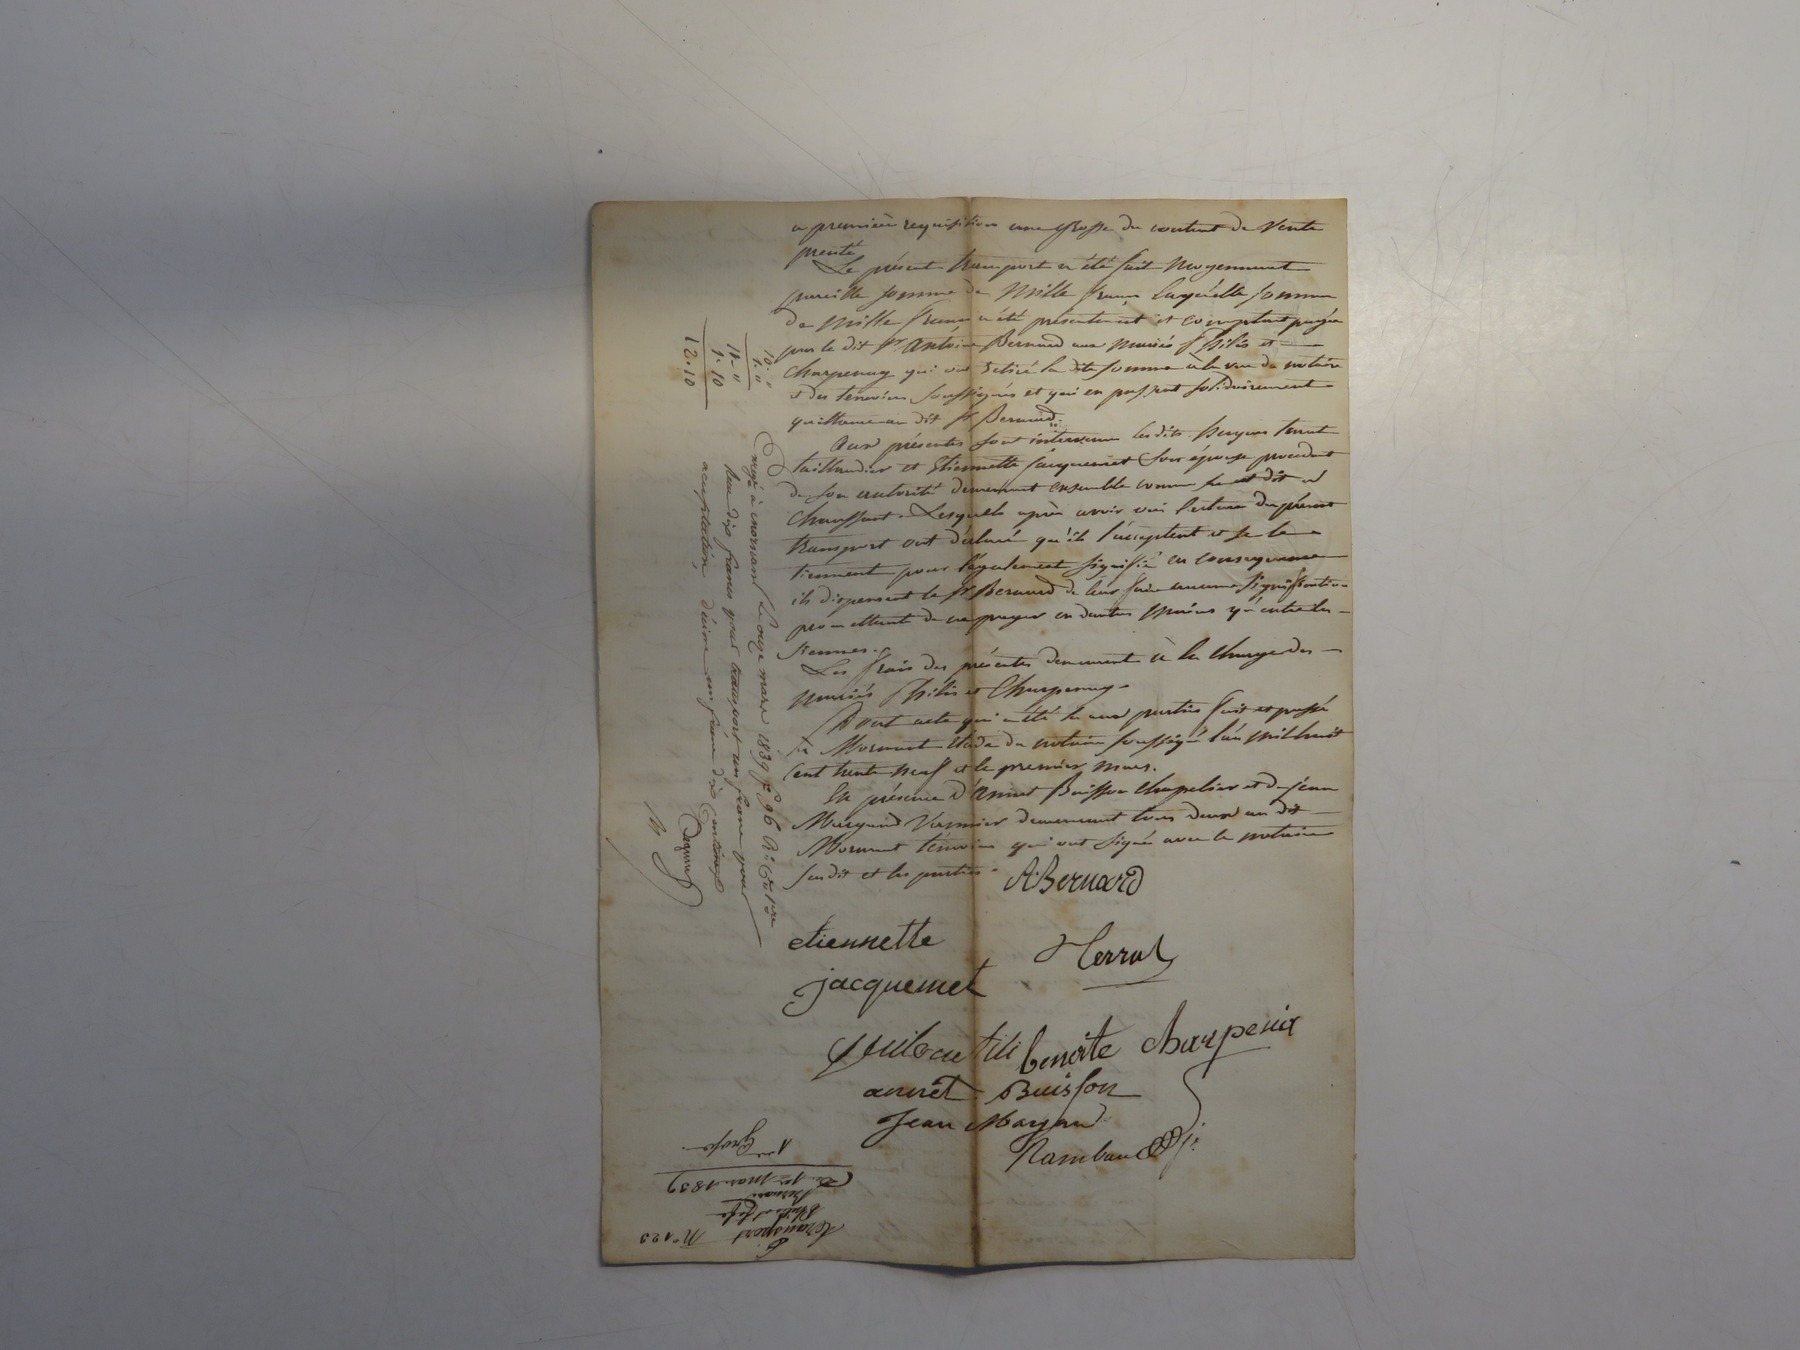 a première requisition une Grosse du contrat de Vente
precité
Le présent transport a été fait Moyennant
pareille somme de Mille francs laquelle somme
de Mille francs a été présentement et comptant payée
par le dit Sr Antoine Bernard aux Mariés Philis et
Charpenay qui ont retiré la dite somme à la vue du notaire
et des temoins soussignés et qui en passent solidairement
quittance au dit Sr Bernard.
Aux présentes sont intervenu lesdits Jacques terrat
taillandier et Etiennette Jacquemet son épouse procedant
de son autorité demeurant ensemble comme il est dit à
Chauffant. Lesquels après avoir oui lecture du présent
transport ont déclaré qu'ils l'acceptent et se le
tiennent pour légalement signifié en conséquence
ils dispensent le Sr Bernard de leur faire aucune signification
promettant de ne payer en dautres Mains qu'entre les
siennes.
Les frais des présentes demeurent à la charge des
Mariés Philis et Charpenay.
Dont acte qui a été lu aux parties fait et passé
à Mornant étude du notaire soussigné l'an Mil huit
cent trente neuf et le premier Mars.
En présence d'Annet Buisson Chapelier et de Jean
demeurant tous deux au dit
Mornant témoins qui ont signé avec le notaire
susdit et les parties.
A Bernard
etiennette
jacquemet
Terrat
benoite charpenix
annet Buisson
Jean
Rambaud
Enregé à mornant le onze mars 1839 fo 96 Ro Ce 1re
Reçu dix francs pour transport un franc pour
acceptation, décime un franc dix centimes
10. "
1. "
11. "
1. 10
12. 10
No 123
transport
Philis et
Bernard
Du 1er mars 1839
1re Grosse